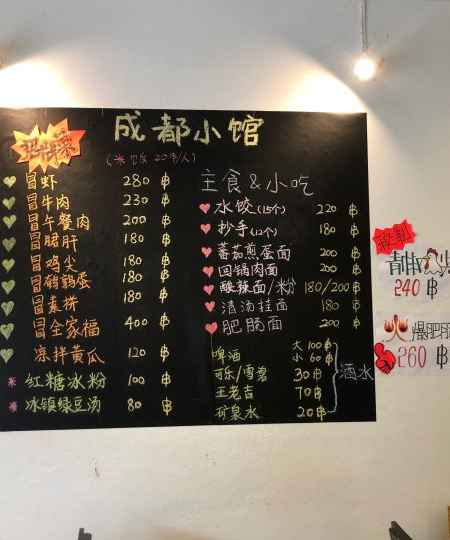 成都小馆
(米饭20฿/人)
冒虾 280 ฿
冒牛肉 230 ฿
冒午餐肉 200 ฿
冒腒肝 180 ฿
冒鸡尖 180 ฿
冒鹌鹑蛋 180 ฿
冒素拼 180 ฿
冒全家福 400 ฿
凉拌黄瓜 120 ฿
红糖冰粉 100 ฿
冰镇绿豆汤 80 ฿
主食&小吃
水饺(15个) 220 ฿
抄手(12个) 180 ฿
蕃茄煎蛋面 200 ฿
回锅肉面 200 ฿
酸辣面/粉 180/200 ฿
清汤挂面 180 ฿
肥肠面 200 ฿
啤酒 大 100฿
小 60฿
可乐/雪碧 30฿
王老吉 70฿
矿泉水 20฿
酒水
240 ฿
火爆肥肠
260 ฿